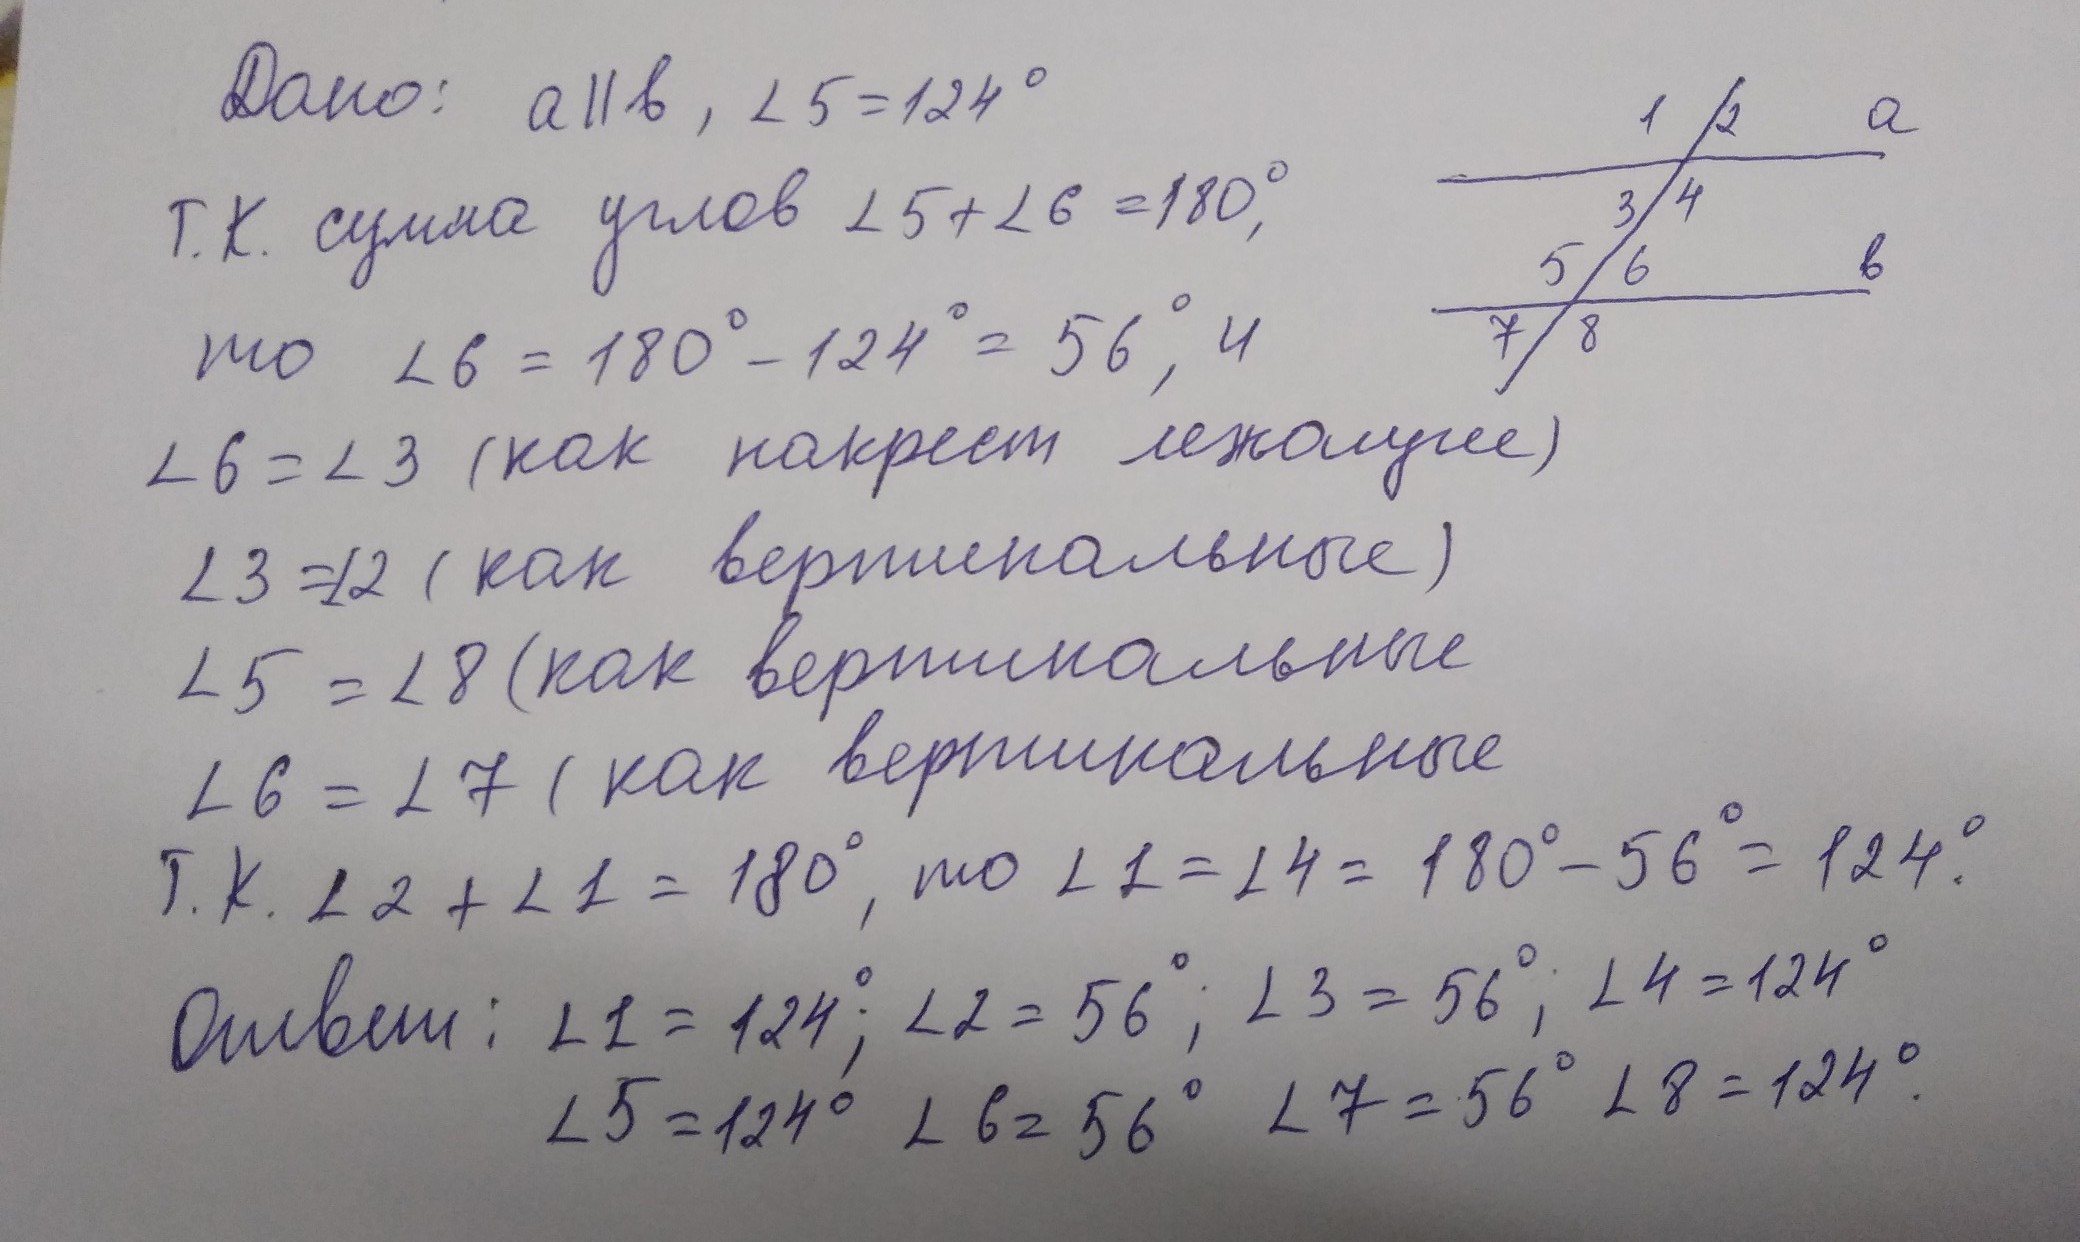 Дано: a||b, ∠5=124°
Т.К. сумма углов ∠5+∠6=180°,
то ∠6=180°-124°=56°, и
∠6=∠3 (как накрест лежащие)
∠3=∠2 (как вертикальные)
∠5=∠8 (как вертикальные
∠6=∠7 (как вертикальные
Т.К. ∠2+∠1=180°, то ∠1=∠4=180°-56°=124°.
Ответ: ∠1=124°; ∠2=56°; ∠3=56°; ∠4=124°
∠5=124° ∠6=56° ∠7=56° ∠8=124°.
1 2 a
3 4
5 6 b
7 8